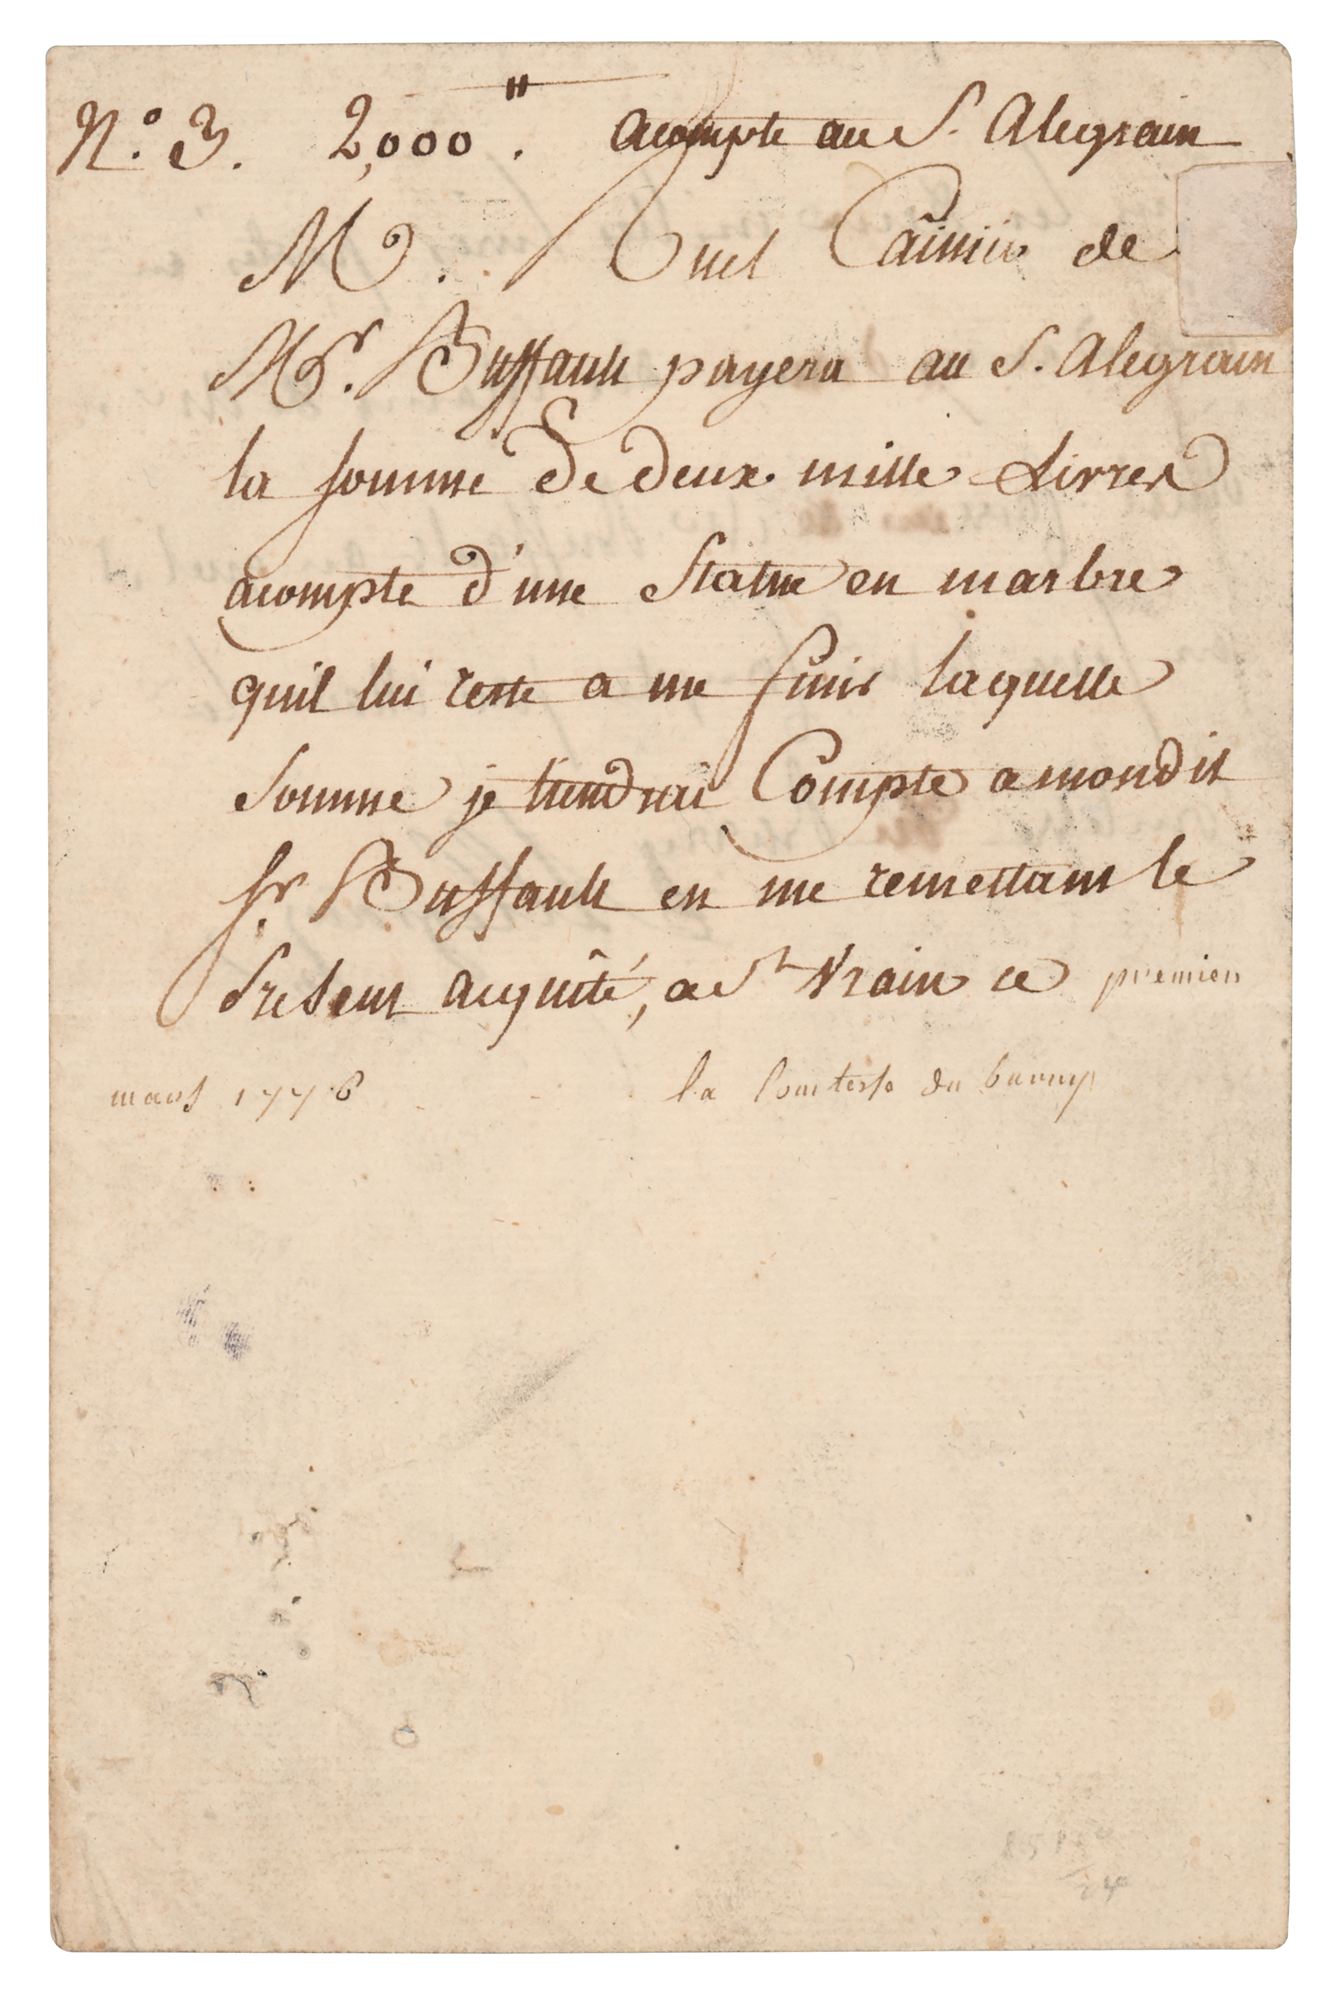 N.º 3. 2,000 ". acompte au S. Alegrain
M. Buel Caissier de
Mr. Buffault payera au S. Alegrain
la somme de deux mille Livres
acompte d'une Statue en marbre
quil lui reste a me finir laquelle
Somme je tiendrai Compte a mondit
Sr Buffault en me remettant le
Present acquité, a St Vrain ce premier
mars 1776 la Comtesse du barry